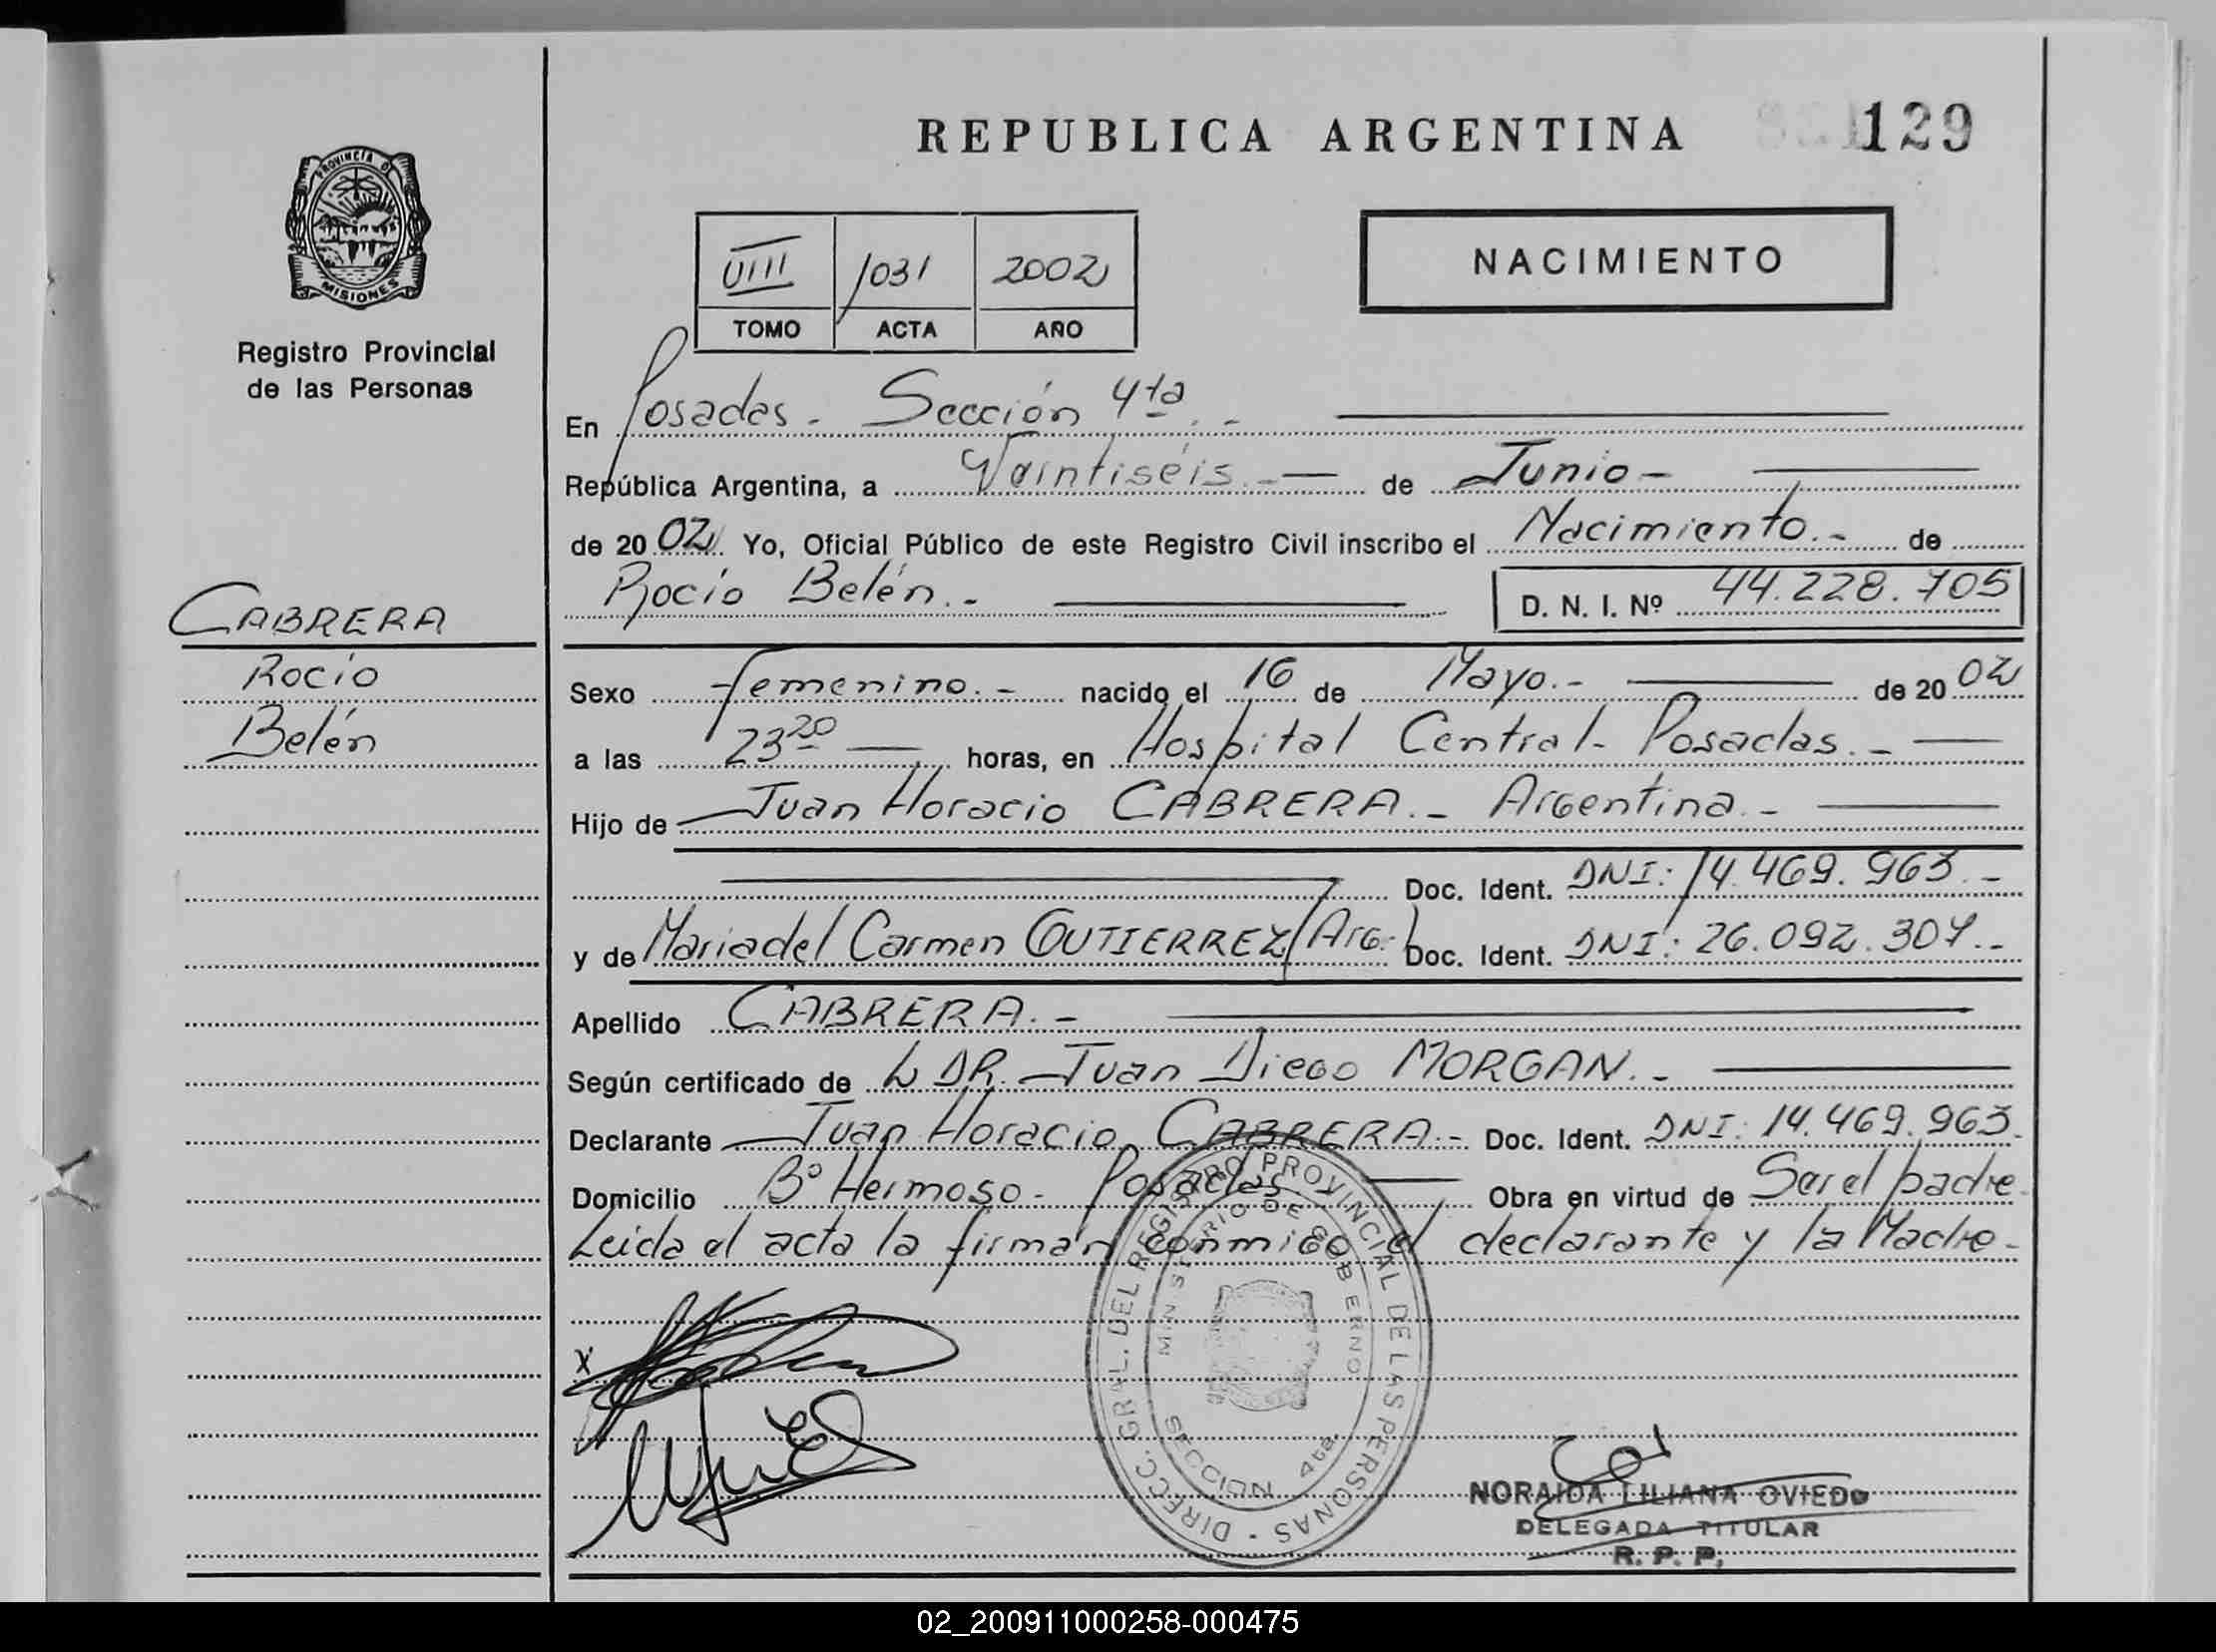 REPUBLICA ARGENTINA
129
PROVINCIA D
MISIONES
Registro Provincial
de las Personas
VIII 1031 2002
TOMO ACTA AÑO
NACIMIENTO
En Posadas - Sección 4ta. -
República Argentina, a Veintiséis. - de Junio -
de 20 02 Yo, Oficial Público de este Registro Civil inscribo el Nacimiento. - de
Rocío Belén. - D. N. I. Nº 44.228.705
CABRERA
Rocío
Belén
Sexo femenino. - nacido el 16 de Mayo. - de 20 02
a las 23 20 horas, en Hospital Central - Posadas. -
Hijo de Juan Horacio CABRERA. - Argentina. -
Doc. Ident. DNI: 14.469.963. -
y de Maria del Carmen GUTIERREZ (Arg.) Doc. Ident. DNI: 26.092.307. -
Apellido CABRERA. -
Según certificado de DR. Juan Diego MORGAN. -
Declarante Juan Horacio CABRERA. - Doc. Ident. DNI: 14.469.963.
Domicilio Bº Hermoso - Posadas. Obra en virtud de Ser el padre
Leida el acta la firman conmigo el declarante y la Madre -
DIRECC. GRAL. DEL REGISTRO PROVINCIAL DE LAS PERSONAS -
MINISTERIO DE GOBIERNO
SECCION 4ta.
X
NORAIDA LILIANA OVIEDO
DELEGADA TITULAR
R. P. P.
02_200911000258-000475